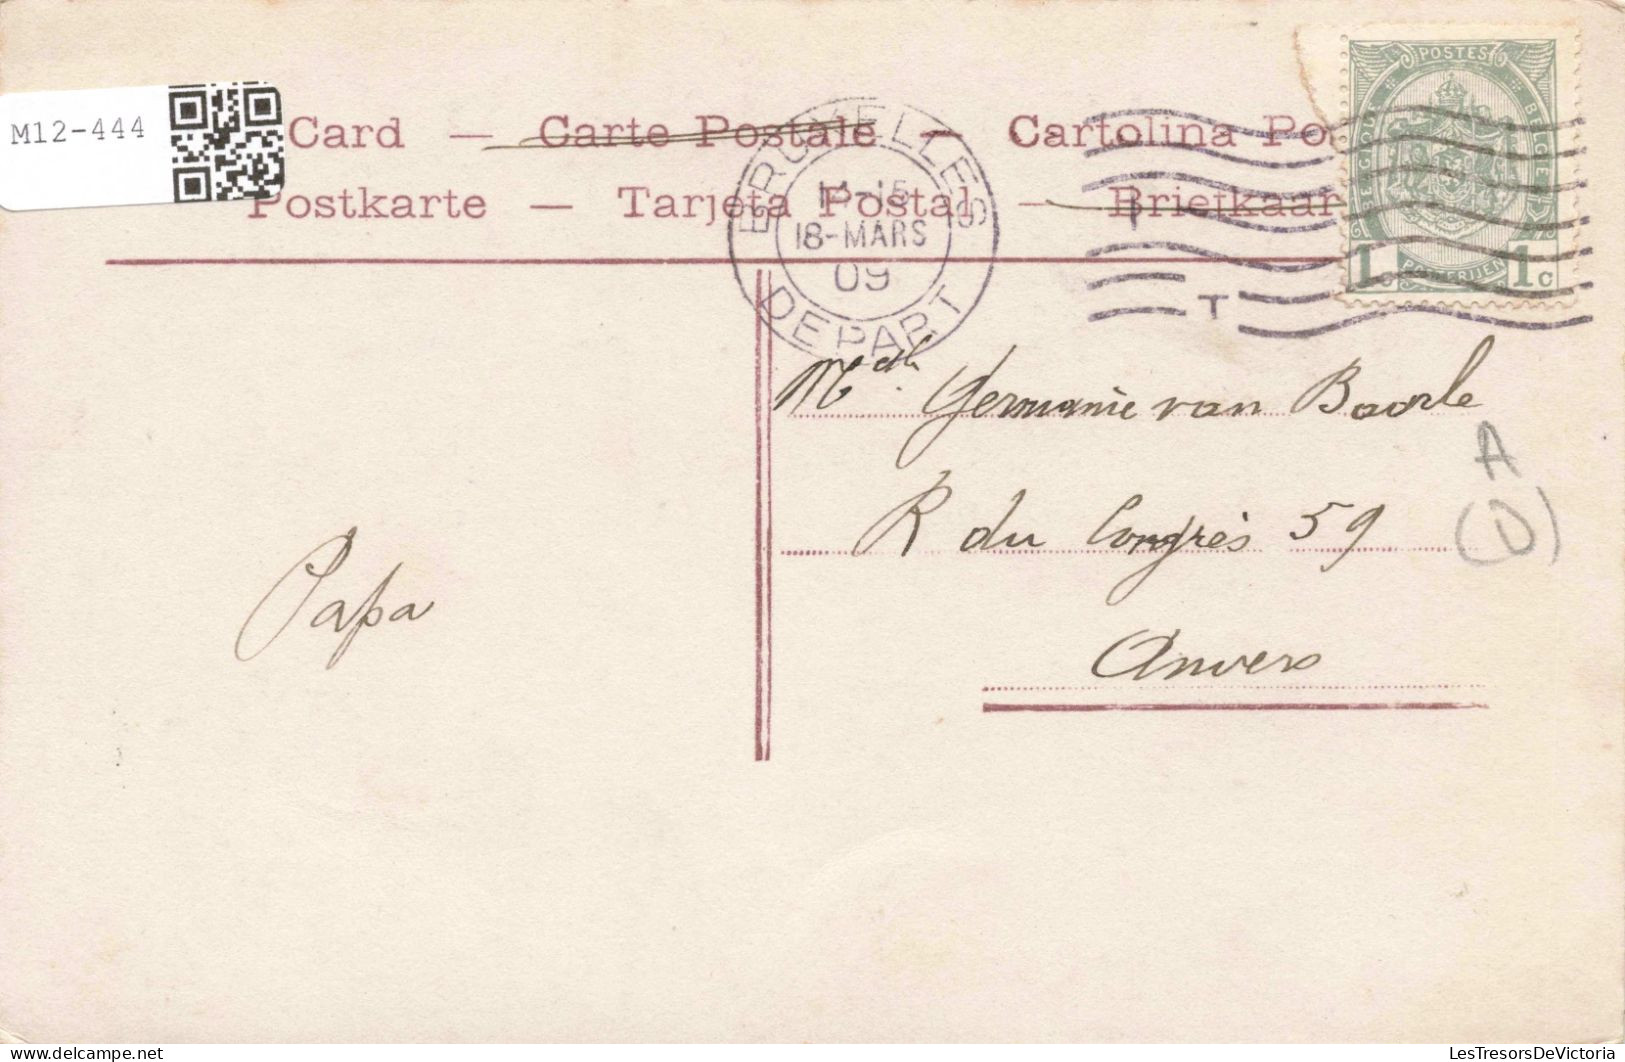 M12-444
Card — Carte Postale — Cartolina Po
Postkarte — Tarjeta Postal — Briefkaar
BRUXELLES
18-MARS
09
DEPART
T
POSTES
BELGIQUE
BELGIE
1c POSTERIJEN 1c
Germanie van Baarle
R du Congrès 59
Anvers
Papa
A
(D)
www.delcampe.net
LesTresorsDeVictoria